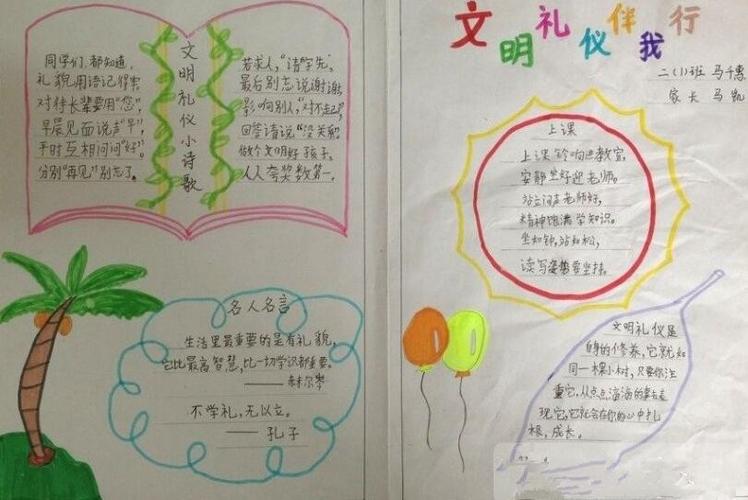 文明礼仪小诗歌
同学们,都知道,
礼貌用语记得牢
对待长辈要用"您",
早晨见面说声"早",
平时互相问问"好"。
分别"再见"别忘了。
若求人,"请"字先,
最后别忘说谢谢,
影响别人,"对不起",
回答请说"没关系"。
做个文明好孩子。
人人夸奖数第一。
名人名言
生活里最重要的是有礼貌,
它比最高智慧,比一切学识都重要。
——赫尔岑
不学礼,无以立。
——孔子
文明礼仪伴我行
二(1)班 马千惠
家长 马凯
上课
上课铃响进教室,
安静坐好迎老师。
站立问声老师好,
精神饱满学知识。
坐如钟,站如松,
读写姿势要坚持。
文明礼仪是
自身的修养,它就如
同一棵小树,只要你注
重它,从点点滴滴的事去表
现它,它就会在你的心中扎
根,成长。